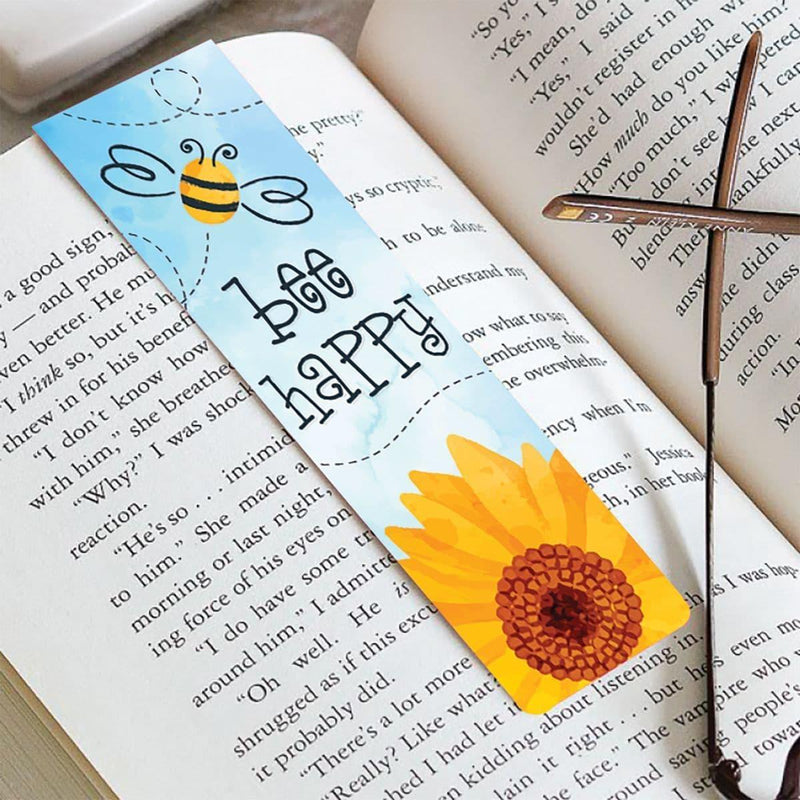 bee
happy
a good sign,
y — and probab
ven better. He mu
"I think so, but it's h
threw in for his benefi
"I don't know how
with him," she breathe
"Why?" I was shock
reaction.
"He's so . . . intimid
to him." She made a
morning or last night,
ing force of his eyes on
"I do have some tr
around him," I admitte
"Oh well. He is
shrugged as if this excu
it probably did.
"There's a lot more
"Really? Like what
shed I had let i
en kidding about listening in.
lain it right . . . but he's even mo
the face." The vampire who
round saving people's
towar
he pretty?"
y."
ys so cryptic,"
h to be alone
nderstand my
ow what to say
embering this
he overwhelm-
ency when I'm
geous." Jessica
h, in her book
s I was hop-
"So yo
"Yes," I s
"I mean, do
"Yes," I said
wouldn't register in h
She'd had enough wi
"How much do you like him?"
"Too much," I wh
"I don't see how I can
blending into the next
Then
answ
she didn't
during class
action.
"In
Mo